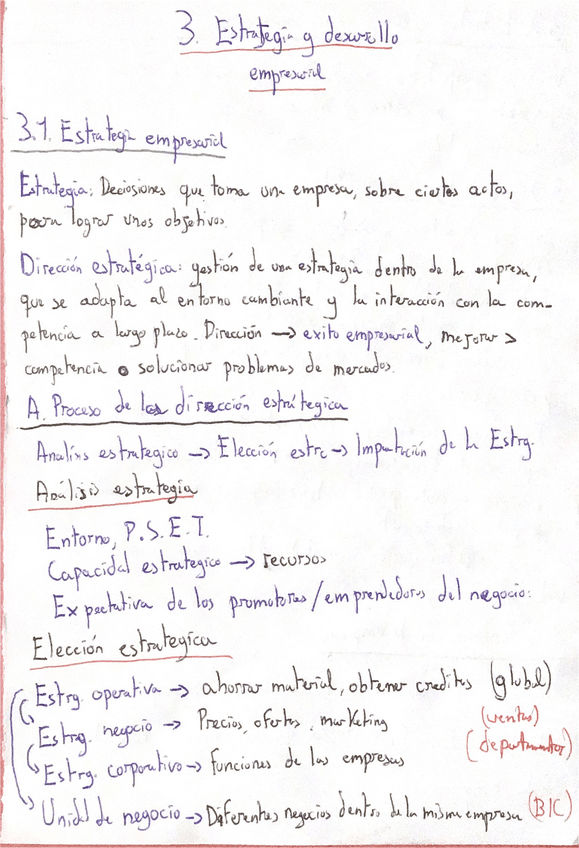 3. Estrategia y desarrollo
empresarial
3.1. Estrategia empresarial
Estrategia: Deciosiones que toma una empresa, sobre ciertos actos,
para lograr unos objetivos.
Dirección estratégica: gestión de una estrategia dentro de la empresa,
que se adapta al entorno cambiante y la interacción con la com-
petencia a largo plazo. Dirección → exito empresarial, mejorar >
competencia o solucionar problemas de mercados.
A. Proceso de la dirección estrátegica
Analíss estrategico → Elección estrc → Implantación de la Estrg.
Análisis estrategia
Entorno, P.S.E.T.
Capacidad estrategico → recursos
Expectativa de los promotores/emprendedores del negocio:
Elección estrategica
Estrg. operativa → ahorrar material, obtener creditos (global)
Estrg. negocio → Precios, ofertas, marketing (ventas)
Estrg. corporativo → funciones de las empresas (departamentos)
Unidad de negocio → Diferentes negocios dentro de la misma empresa (BIC)